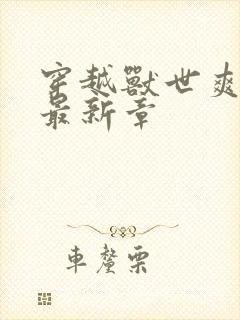 穿越獸世爽
最新章
車釐栗